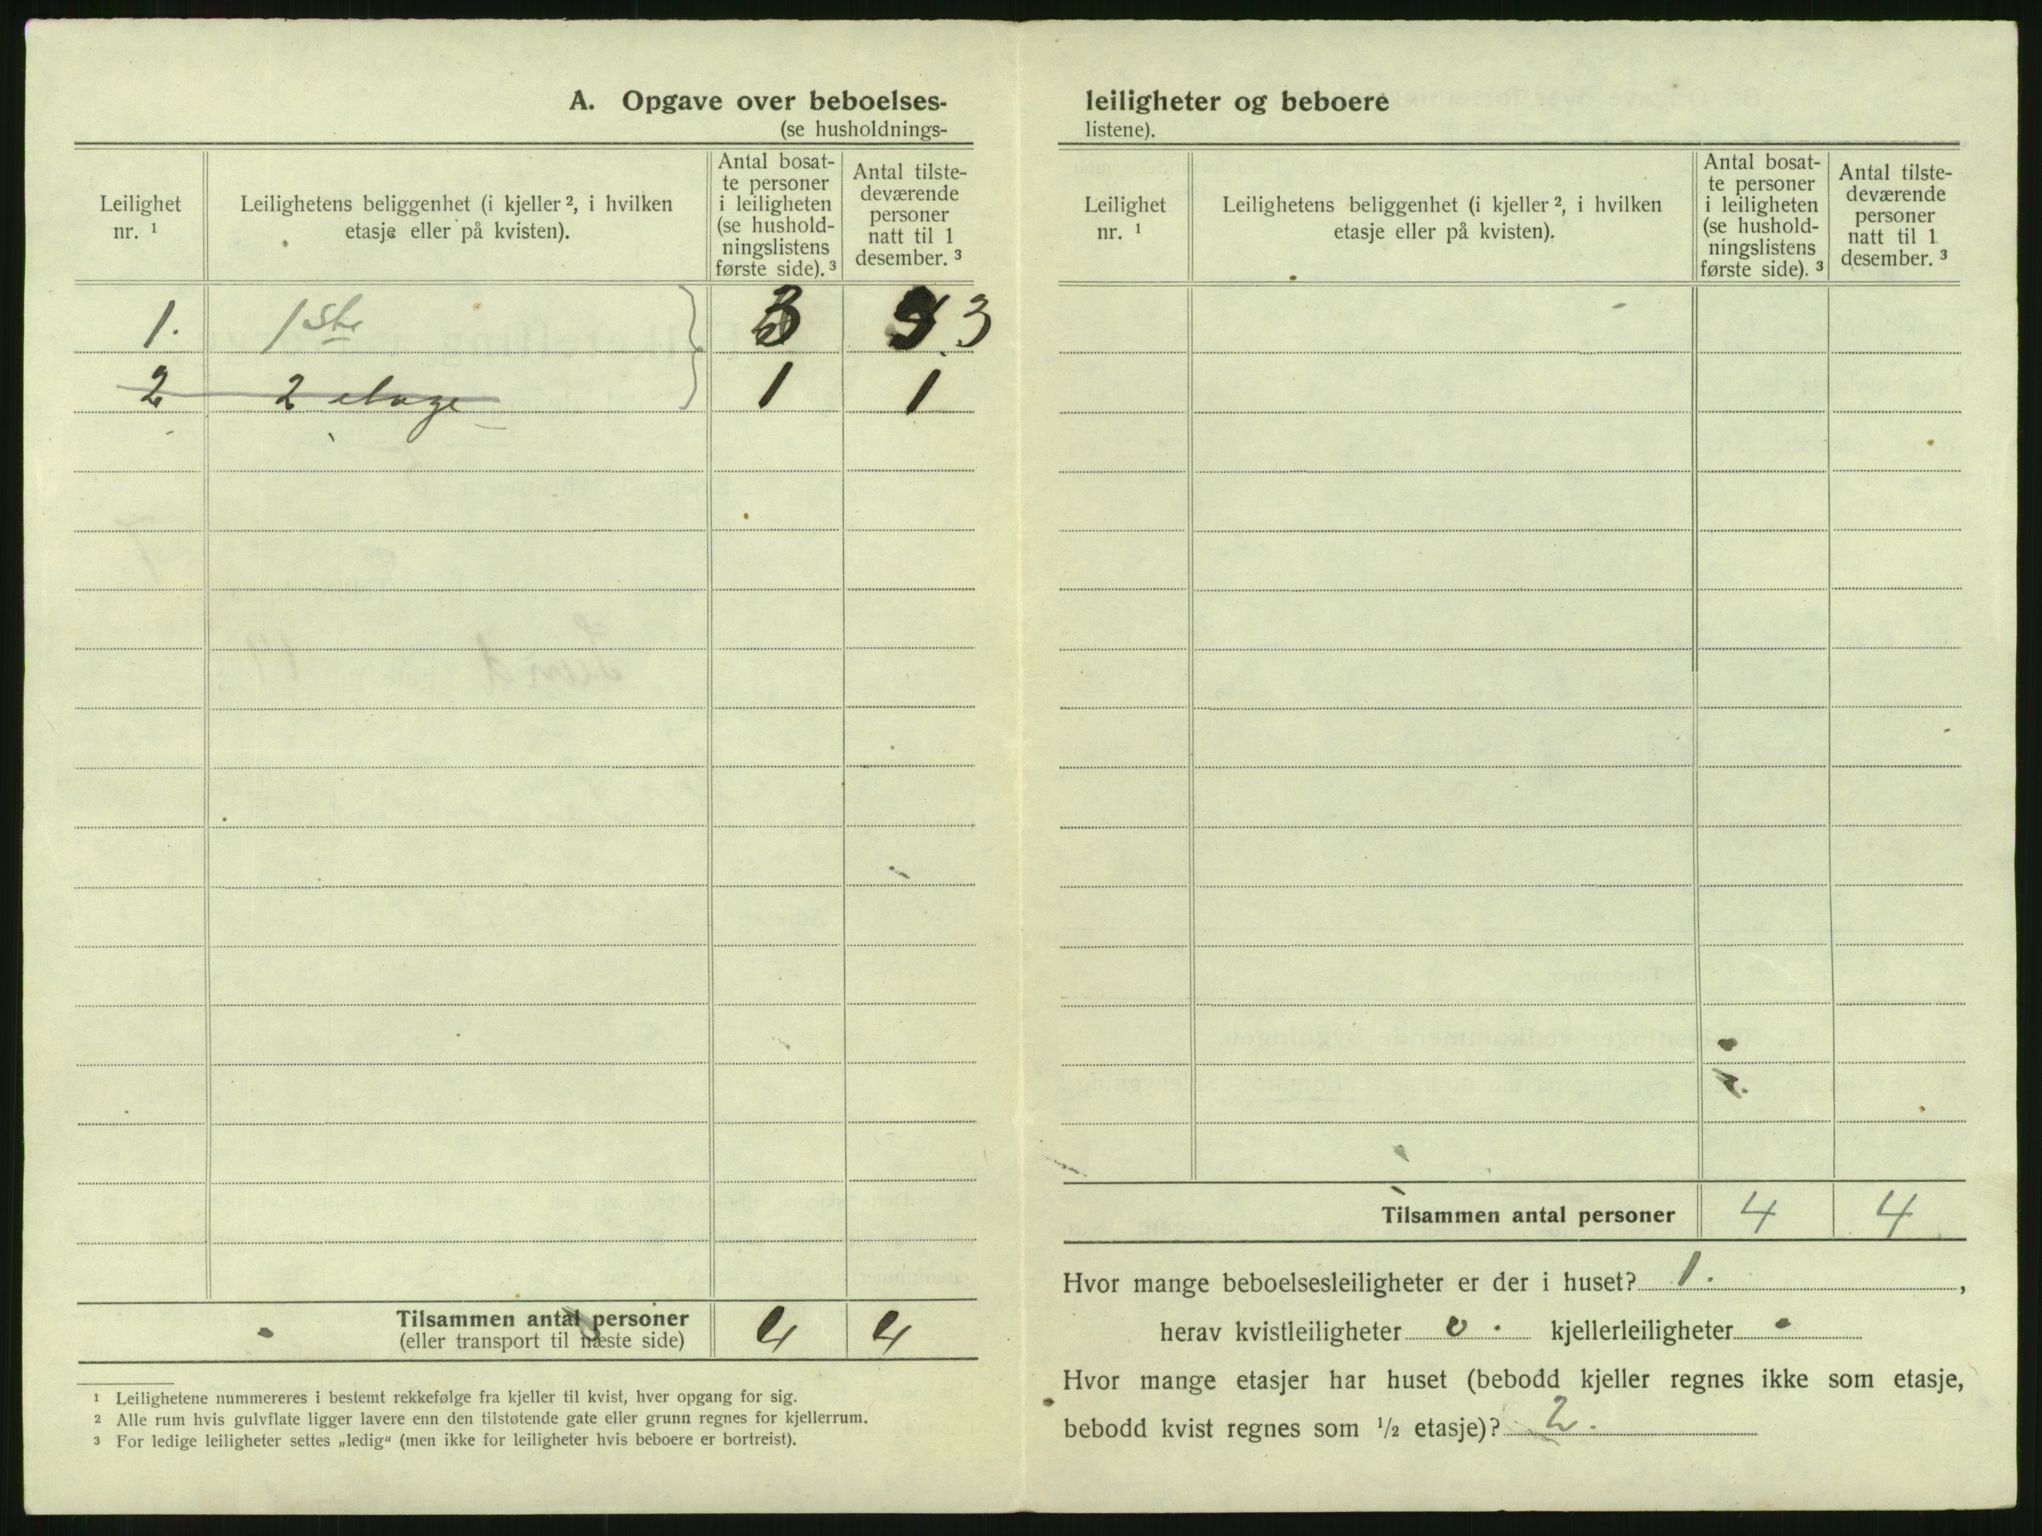 A. Opgave over beboelses-
(se husholdnings-
Leilighet nr. ¹
Leilighetens beliggenhet (i kjeller ², i hvilken etasje eller på kvisten).
Antal bosat-
te personer
i leiligheten
(se hushold-
ningslistens
første side). ³
Antal tilste-
deværende
personer
natt til 1
desember. ³
1. 1ste 3 3
2 2 etage 1 1
Tilsammen antal personer 4 4
(eller transport til næste side)
¹ Leilighetene nummereres i bestemt rekkefølge fra kjeller til kvist, hver opgang for sig.
² Alle rum hvis gulvflate ligger lavere enn den tilstøtende gate eller grunn regnes for kjellerrum.
³ For ledige leiligheter settes „ledig“ (men ikke for leiligheter hvis beboere er bortreist).
leiligheter og beboere
listene).
Leilighet nr. ¹
Leilighetens beliggenhet (i kjeller ², i hvilken etasje eller på kvisten).
Antal bosat-
te personer
i leiligheten
(se hushold-
ningslistens
første side). ³
Antal tilste-
deværende
personer
natt til 1
desember. ³
Tilsammen antal personer 4 4
Hvor mange beboelsesleiligheter er der i huset? 1. ,
herav kvistleiligheter 0 . kjellerleiligheter
Hvor mange etasjer har huset (bebodd kjeller regnes ikke som etasje,
bebodd kvist regnes som ½ etasje)? 2.